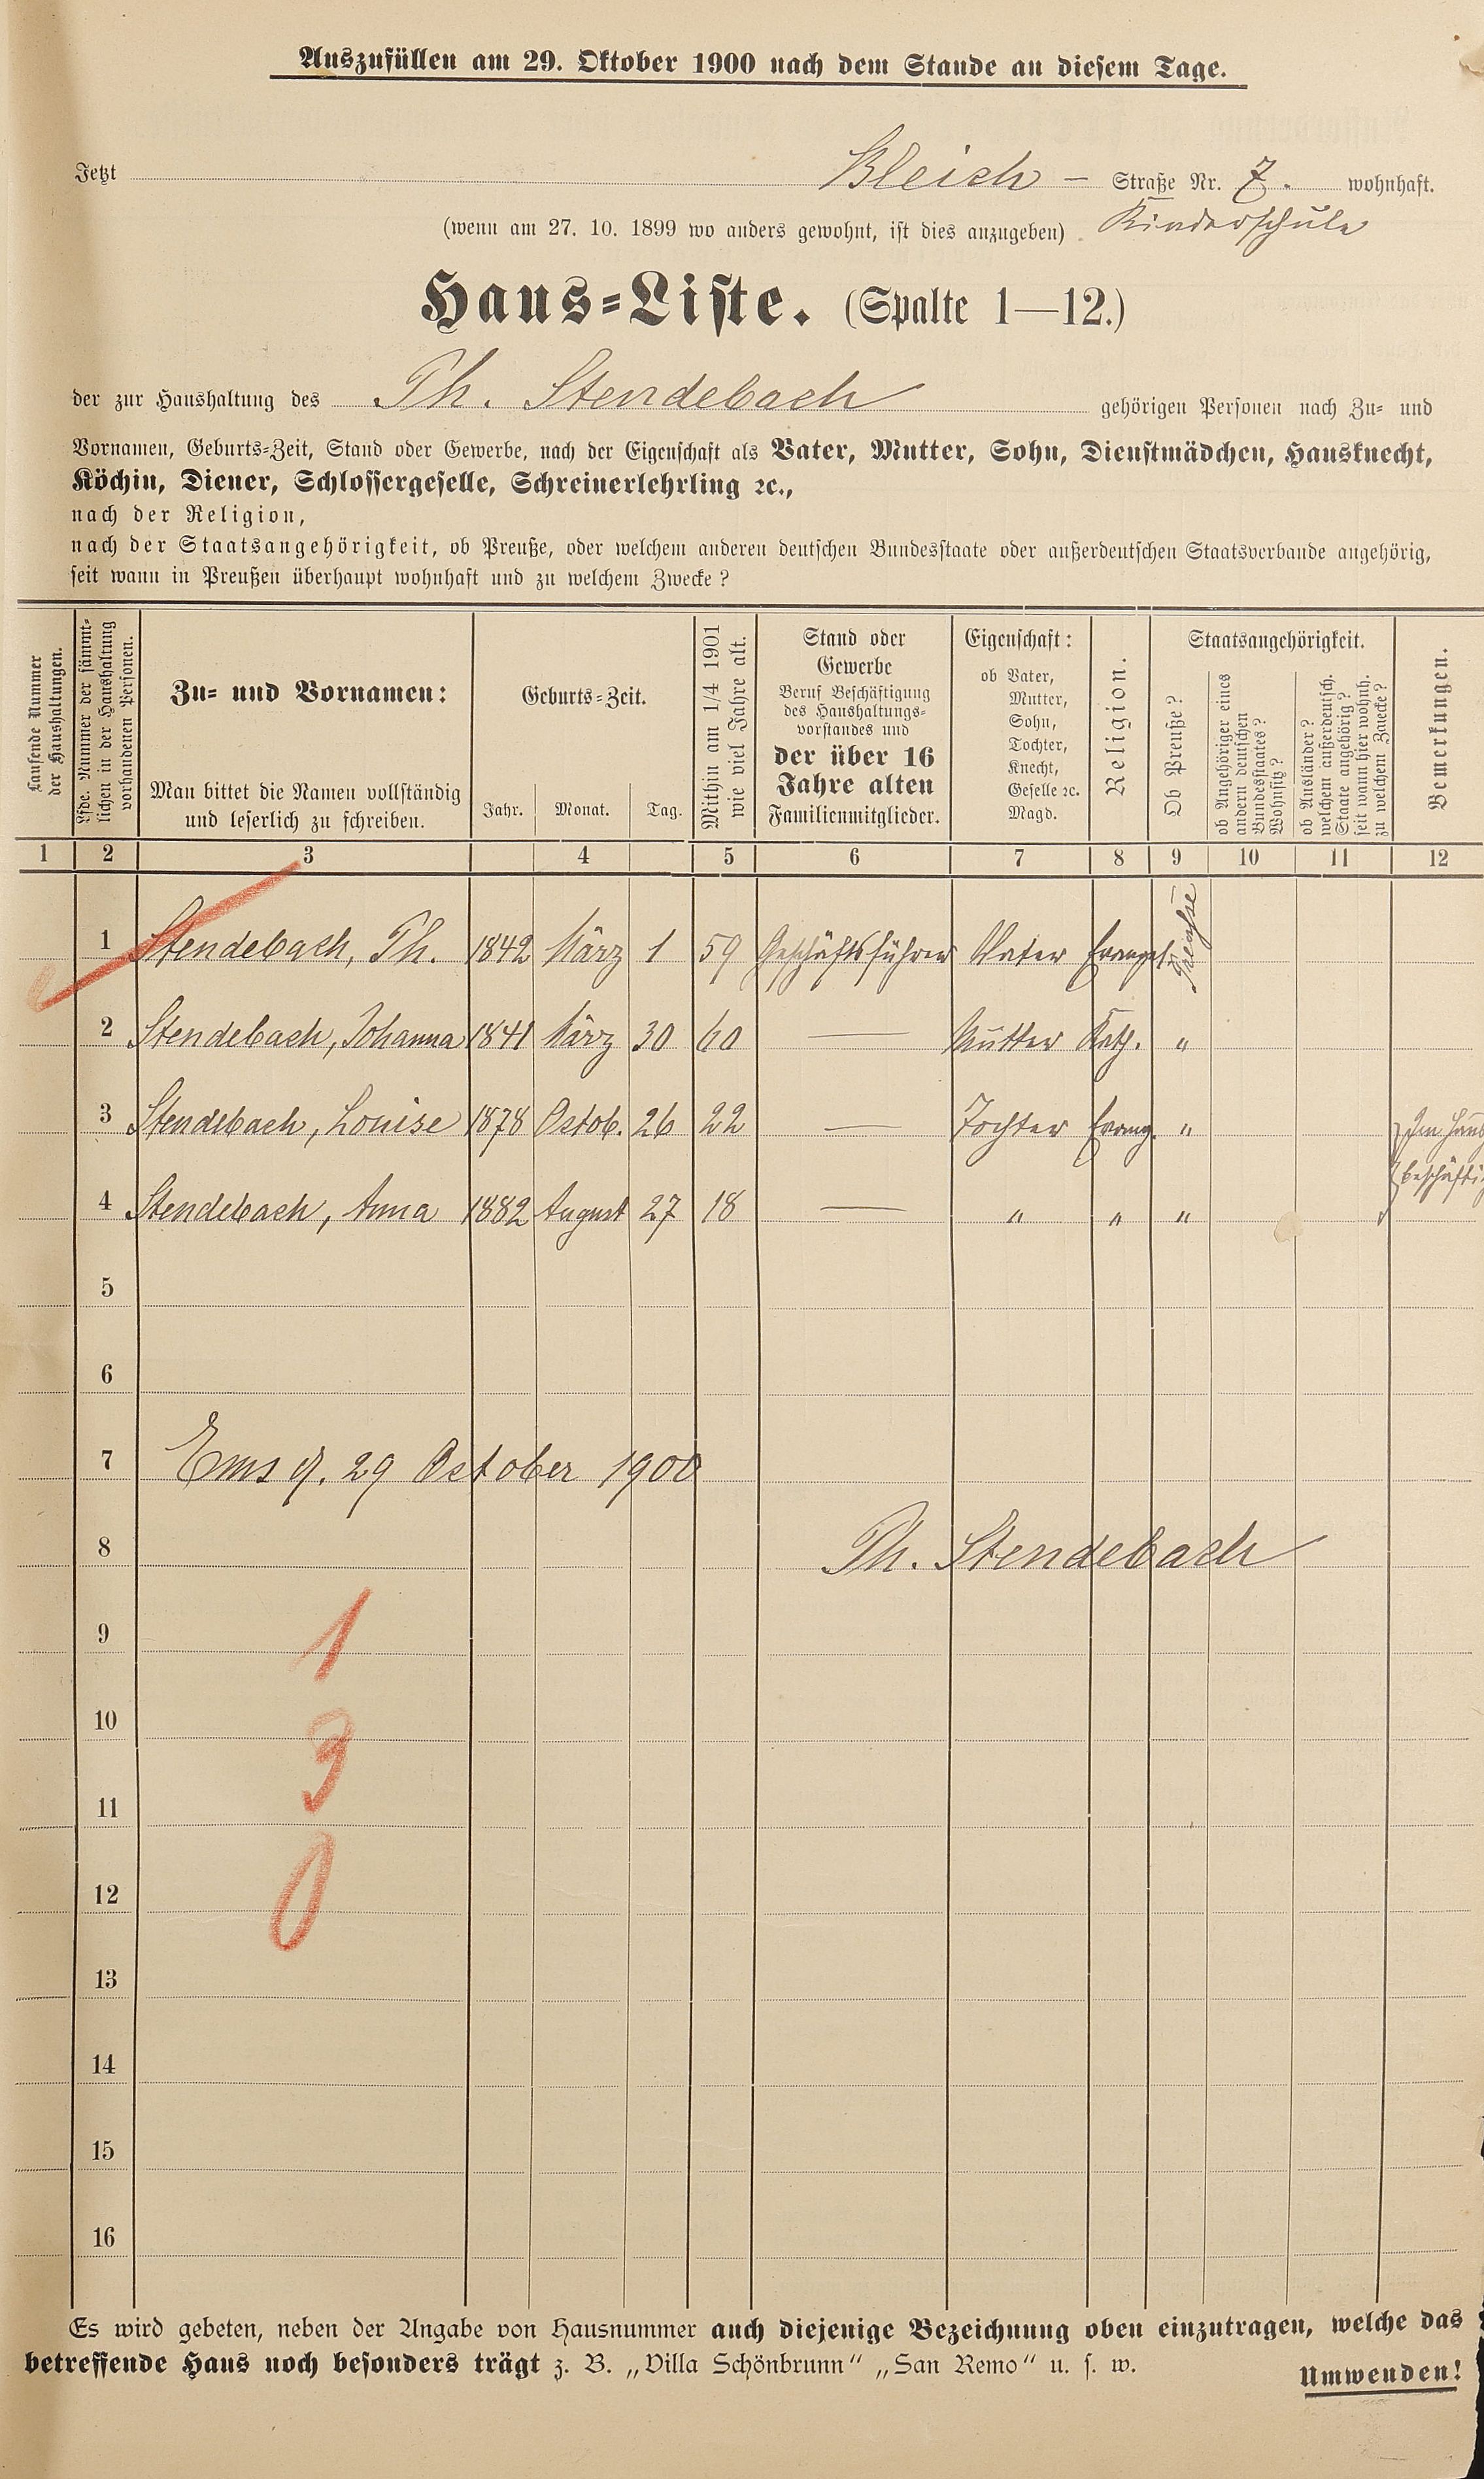 Auszufüllen am 29. Oktober 1900 nach dem Stande an diesem Tage.
Jetzt Bleich – Straße Nr. 7. wohnhaft.
(wenn am 27. 10. 1899 wo anders gewohnt, ist dies anzugeben) Kinderschule
Haus=Liste. (Spalte 1—12.)
der zur Haushaltung des Th. Stendebach gehörigen Personen nach Zu= und
Vornamen, Geburts=Zeit, Stand oder Gewerbe, nach der Eigenschaft als Vater, Mutter, Sohn, Dienstmädchen, Hausknecht,
Köchin, Diener, Schlossergeselle, Schreinerlehrling ꝛc.,
nach der Religion,
nach der Staatsangehörigkeit, ob Preuße, oder welchem anderen deutschen Bundesstaate oder außerdeutschen Staatsverbande angehörig,
seit wann in Preußen überhaupt wohnhaft und zu welchem Zwecke?
Laufende Nummer
der Haushaltungen.
Lfde. Nummer der sämmt=
lichen in der Haushaltung
vorhandenen Personen.
Zu= und Vornamen:
Man bittet die Namen vollständig
und leserlich zu schreiben.
Geburts=Zeit.
Jahr. Monat. Tag.
Mithin am 1/4 1901
wie viel Jahre alt.
Stand oder
Gewerbe
Beruf Beschäftigung
des Haushaltungs=
vorstandes und
der über 16
Jahre alten
Familienmitglieder.
Eigenschaft:
ob Vater,
Mutter,
Sohn,
Tochter,
Knecht,
Geselle ꝛc.
Magd.
Religion.
Staatsangehörigkeit.
Ob Preuße?
ob Angehöriger eines
andern deutschen
Bundesstaates?
Wohnsitz?
ob Ausländer?
welchem außerdeutsch.
Staate angehörig?
seit wann hier wohnh.
zu welchem Zwecke?
Bemerkungen.
1 2 3 4 5 6 7 8 9 10 11 12
1 Stendebach, Th. 1842 März 1 59 Geschäftsführer Vater Evangel. Preusse
2 Stendebach, Johanna 1841 März 30 60 — Mutter Kath. "
3 Stendebach, Louise 1878 Octob. 26 22 — Tochter Evang. " Im Haus
beschäfti
4 Stendebach, Anna 1882 August 27 18 — " " "
5
6
7 Ems d. 29 October 1900
8 Th. Stendebach
9 1
10
3
11
12 0
13
14
15
16
Es wird gebeten, neben der Angabe von Hausnummer auch diejenige Bezeichnung oben einzutragen, welche das
betreffende Haus noch besonders trägt z. B. „Villa Schönbrunn" „San Remo" u. s. w.
Umwenden!